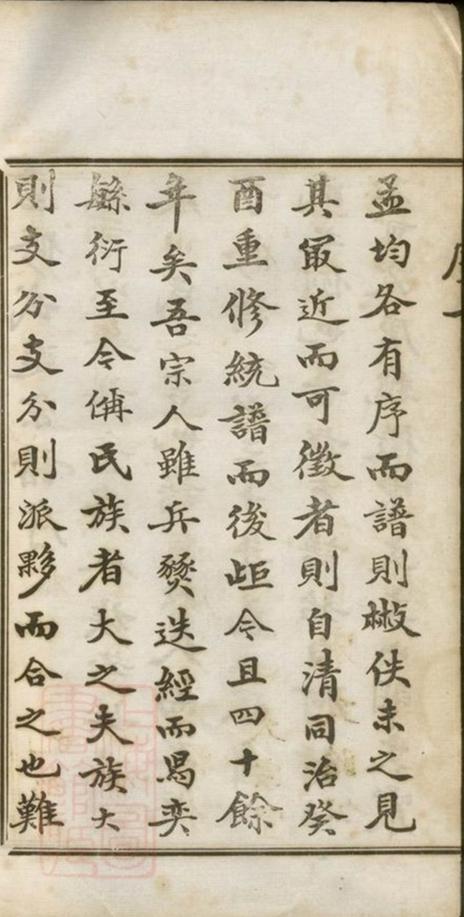 孟均各有序而譜則㪚佚未之見
其冣近而可徵者則自清同治癸
酉重修統譜而後歫今且四十餘
年矣吾宗人雖兵燹迭經而曷奕
緐衍至今偁民族者大之夫族大
則支分支分則派夥而合之也難